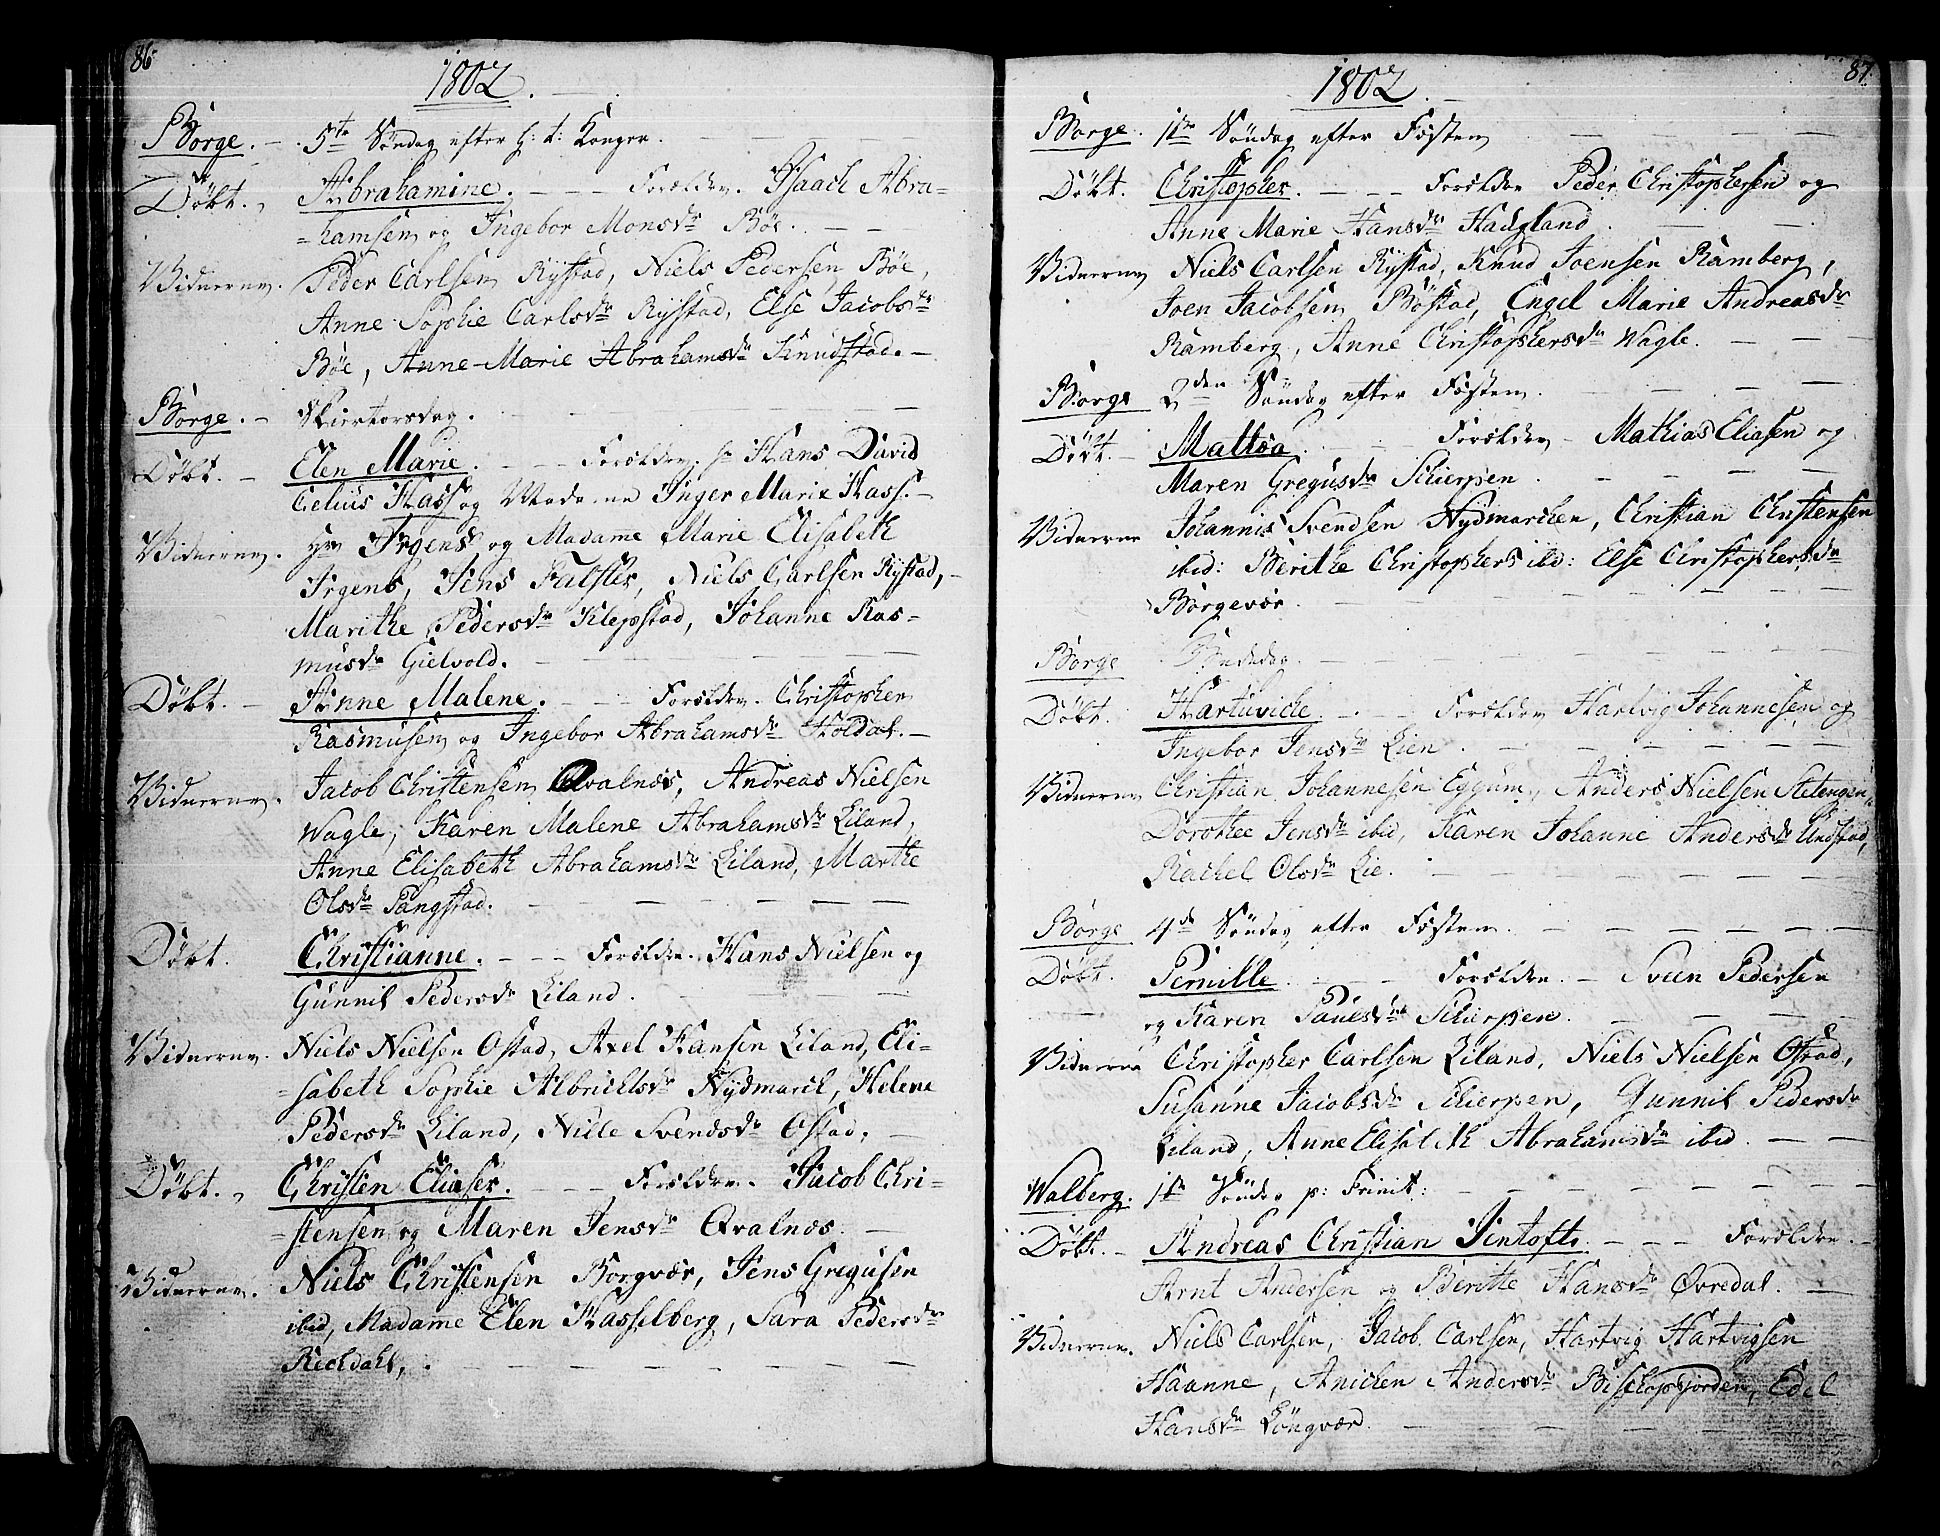 86
1802.
Borge. – 5te Søndag efter h: t: Konger.
Døbt. Abrahamine. – – Forældre. Isaach Abra-
=hamsen og Ingebor Monsdr Bøe. – –
Vidnerne. Peder Carlsen Rystad, Niels Pedersen Bøe,
Anne Sophie Carlsdr Rystad, Else Jacobsdr
Bøe, Anne Marie Abrahamsdr Knudstad. –
Borge. – Skiertorsdag.
Døbt. – Elen Marie. – – Forældre. Hr Hans David
Celius Hass og Madame Inger Marie Hass. –
Vidnerne. Hr Irgens og Madame Marie Elisabeth
Irgens, Jens Falster, Niels Carlsen Rystad, –
Marithe Pedersdr Klepstad, Johanne Ras-
musdr Gielvold. –
Døbt. – Anne Malene. – – Forældre. Christopher
Rasmusen og Ingebor Abrahamsdr Holdal. –
Vidnerne. Jacob Christensen Qvalnæs, Andreas Nielsen
Wagle, Karen Malene Abrahamsdr Liland,
Anne Elisabeth Abrahamsdr Liland, Marthe
Olsdr Pangstad. –
Døbt. Christianne. – – – Forældre. Hans Nielsen og
Gunnil Pedersdr Liland.
Vidnerne. Niels Nielsen Ostad, Axel Hansen Liland, Eli-
=sabeth Sophie Albrichtsdr Nydmarch, Helene
Pedersdr Liland, Nille Svendsdr Ostad.
Døbt. Christen Eliaser. – – – Forældre. Jacob Chri-
=stensen og Maren Jensdr Qvalnæs. –
Vidnerne. Niels Christensen Borgvær, Jens Gregusen
ibid, Madame Elen Hasselberg, Sara Pedersdr
Rechdahl. –
87
1802.
Borge. 1ste Søndag efter Fasten –
Døbt. Christopher. – – Forældre Peder Christophersen og
Anne Marie Hansdr Haugland. –
Vidnerne Niels Carlsen Rystad, Knud Joensen Ramberg,
Joen Jacobsen Bøstad, Engel Marie Andreasdr
Ramberg, Anne Christophersdr Wagle. –
Borge 2den Søndag efter Fasten. –
Døbt. – Mattea. Forældre – Mathias Eliasen og
Maren Gregusdr Schierpen. –
Vidnerne Johannis Svendsen Nydmarchen, Christian Christensen
ibid: Berithe Christophers ibid: Else Christophersdr
Borgevær. –
Borge Bededag. –
Døbt. Hartuviche. – – Forældre Hartvig Johannesen og
Ingebor Jensdr Lien. –
Vidnerne Christian Johannesen Eggum, Anders Nielsen Stetengen,
Dorothee Jensdr ibid, Karen Johanne Andersdr Undstad,
Rachel Olsdr Lie. –
Borge 4de Søndag efter Fasten. –
Døbt. Pernille. – – Forældre. – Sven Pedersen
og Karen Paulsdr Schierpen. –
Vidnerne Christopher Carlsen Liland, Niels Nielsen Ostad,
Susanne Jacobsdr Schierpen, Gunnil Pedersdr
Liland, Anne Elisabeth Abrahamsdr ibid. –
Walberg. 1ste Søndag p: Trinit: –
Døbt. – Andreas Christian Jentoft. – – – Forældre. –
Arnt Andersen og Berithe Hansdr Øvredal. –
Vidnerne. Niels Carlsen, Jacob Carlsen, Hartvig Hartvigsen
Haanne, Anichen Andersdr Bischopsjorden, Edel
Hansdr Løngvær. –